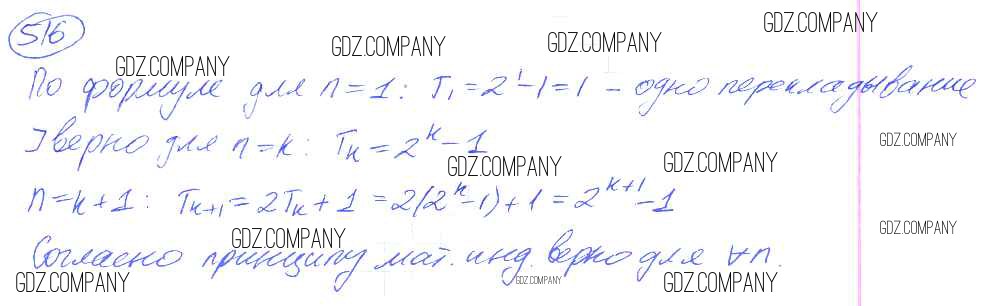 516
По формуле для n=1: T₁=2¹-1=1 – одно перекладывание
] верно для n=k: Tₖ=2ᵏ-1
n=k+1: Tₖ₊₁=2Tₖ+1=2(2ᵏ-1)+1=2ᵏ⁺¹-1
Согласно принципу мат. инд. верно для ∀n.
GDZ.COMPANY
GDZ.COMPANY
GDZ.COMPANY
GDZ.COMPANY
GDZ.COMPANY
GDZ.COMPANY
GDZ.COMPANY
GDZ.COMPANY
GDZ.COMPANY
GDZ.COMPANY
GDZ.COMPANY
GDZ.COMPANY